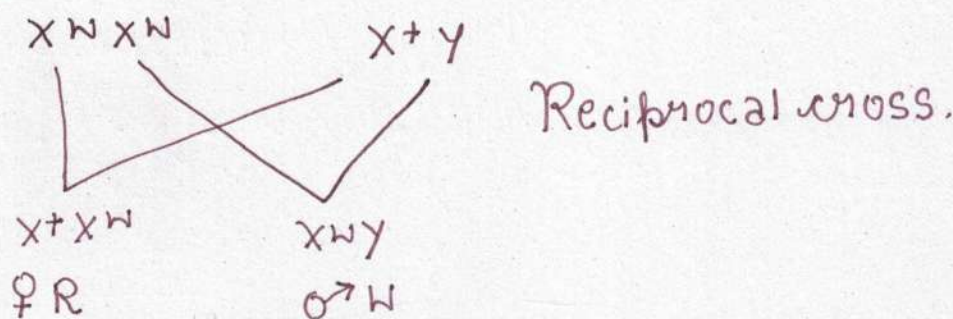 XW XW X+ Y
Reciprocal cross.
X+XW XWY
♀ R ♂ W